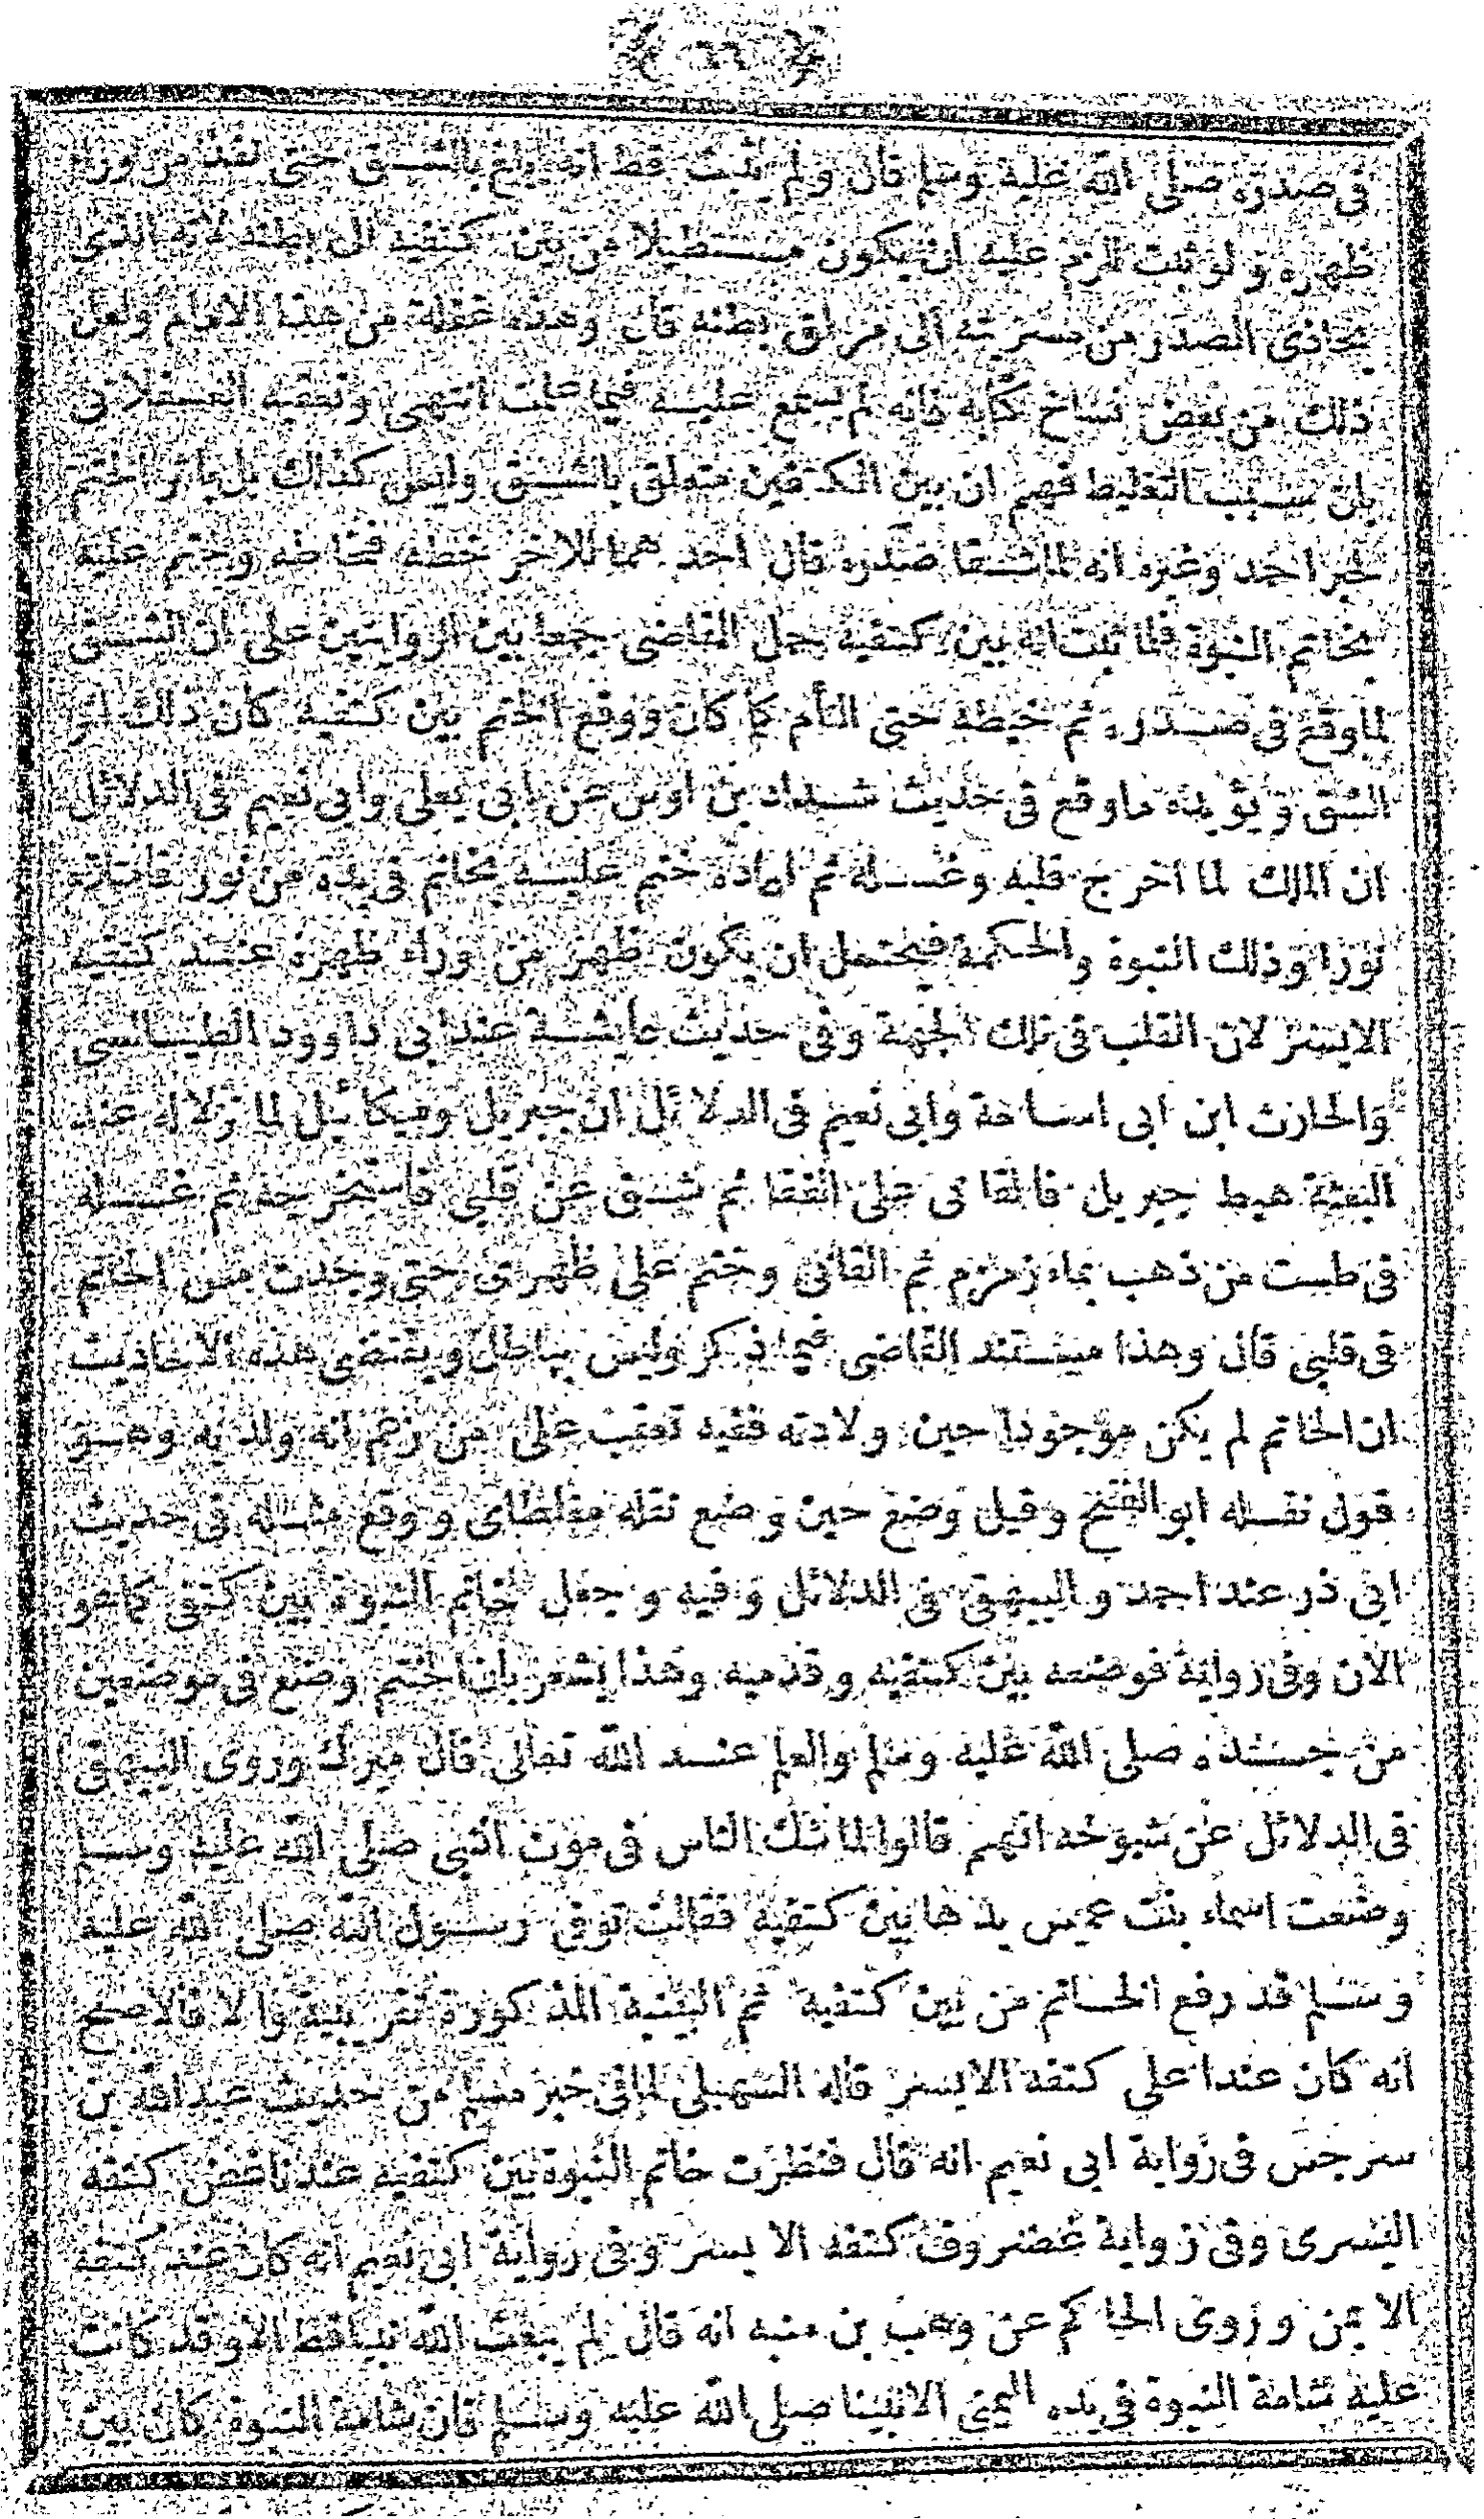 فى صدره صلى الله عليه وسلم قال ولم يثبت قط انه بلغ بالشق حتى نفذ من وراء
ظهره ولو ثبت للزم عليه ان يكون مستطيلا من بين كتفيه الى بطنه لانه الذى
يحاذى الصدر من مسربته الى مراق بطنه قال وهذه غفلة من هذا الامام ولعل
ذلك من بعض نساخ كتابه فانه لم يسمع عليه فيما علمت انتهى وتعقبه العسقلانى
بان سبب التغليط فهم ان بين الكتفين متعلق بالشق وليس كذلك بل باثر الختم
لخبر احمد وغيره انه لما شقا صدره قال احد هما للاخر خطه فخاطه وختم عليه
بخاتم النبوة فلما ثبت انه بين كتفيه حمل القاضى جمعا بين الروايتين على ان الشق
لما وقع فى صدره ثم خيطه حتى التأم كما كان ووقع الختم بين كتفيه كان ذلك اثر
الشق ويؤيده ما وقع فى حديث شداد بن اوس عن ابى يعلى وابى نعيم فى الدلائل
ان الملك لما اخرج قلبه وغسله ثم اعاده ختم عليه بخاتم فى يده من نور فامتلأ
نورا وذلك النبوة والحكمة فيحتمل ان يكون ظهر من وراء ظهره عند كتفيه
الايسر لان القلب فى تلك الجهة وفى حديث عايشة عند ابى داوود الطيالسى
والحارث ابن ابى اسامة وابى نعيم فى الدلائل ان جبريل وميكائيل لما نزلا له عند
البعثة هبط جبريل فالقانى على القفا ثم شق عن قلبى فاستخرجه ثم غسله
فى طست من ذهب بماء زمزم ثم القانى وختم على ظهرى حتى وجدت مس الخاتم
فى قلبى قال وهذا مستند القاضى فيما ذكر وليس بباطل ويقتضى هذه الاحاديث
ان الخاتم لم يكن موجودا حين ولادته ففيه تعقب على من زعم انه ولد به وهو
قول نقله ابو الفتح وقيل وضع حين وضع نقله مغلطاى ووقع مثله فى حديث
ابى ذر عند احمد والبيهقى فى الدلائل وفيه وجعل خاتم النبوة بين كتفى كما هو
الان وفى رواية فوضعه بين كتفيه وقدميه وهذا يشعر بان الختم وضع فى موضعين
من جسده صلى الله عليه وسلم والعلم عند الله تعالى قال ميرك وروى البيهقى
فى الدلائل عن شيوخه انهم قالوا لما شك الناس فى موت النبى صلى الله عليه وسلم
وضعت اسماء بنت عميس يدها بين كتفيه فقالت توفى رسول الله صلى الله عليه
وسلم قد رفع الخاتم من بين كتفيه ثم البينية المذكورة تقريبية والا فالاصح
انه كان عند اعلى كتفه الايسر قاله السهيلى لما فى خبر مسلم من حديث عبد الله بن
سرجس فى رواية ابى نعيم انه قال فنظرت خاتم النبوة بين كتفيه عند ناغض كتفه
اليسرى وفى رواية غضروف كتفه الايسر وفى رواية ابى نعيم انه كان عند كتفه
الايمن وروى الحاكم عن وهب بن منبه انه قال لم يبعث الله نبيا قط الا وقد كانت
عليه شامة النبوة فى يده اليمنى الا نبينا صلى الله عليه وسلم فان شامة النبوة كان بين